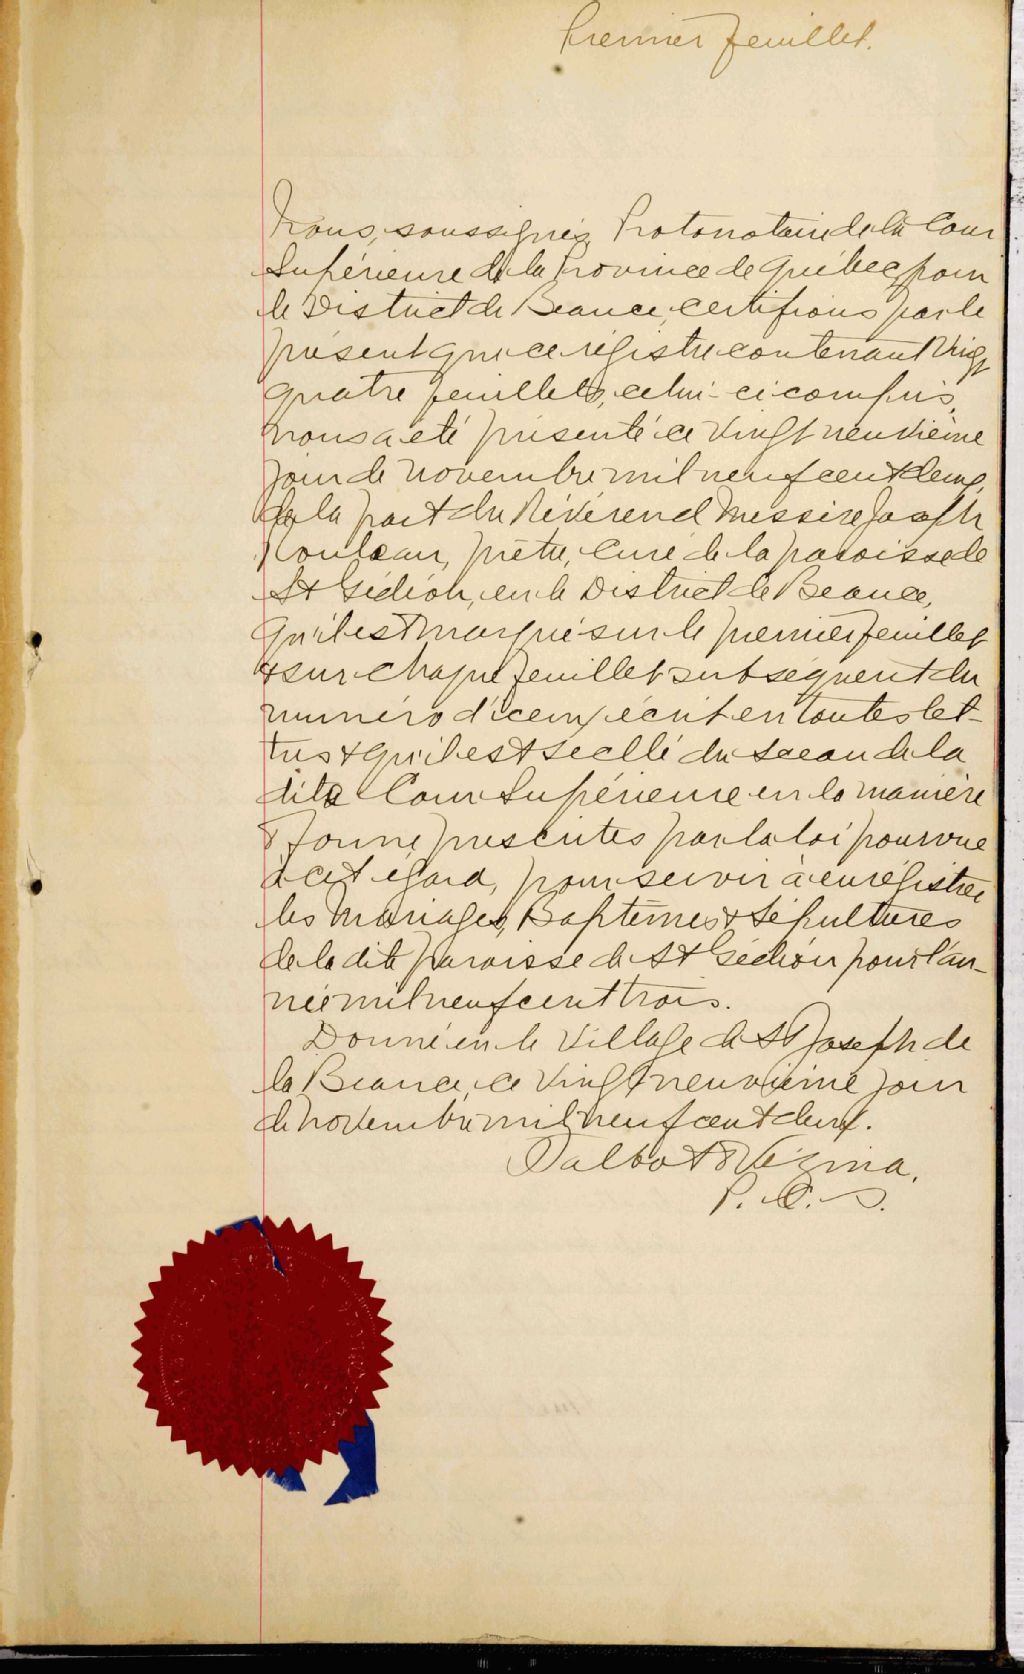 Premier feuillet.
Nous, soussignés, Protonotaire de la Cour
Supérieure de la Province de Québec, pour
le District de Beauce, certifions par le
présent que ce régistre contenant Vingt
quatre feuillets, celui-ci compris,
nous a été présenté ce Vingt neuvième
jour de novembre mil neuf cent deux,
de la part du Révérend Messire Joseph
Rouleau, prêtre, Curé de la paroisse de
St Gédéon, en le District de Beauce,
qu'il est marqué sur le premier feuillet
& sur chaque feuillet subséquent du
numéro d'icelui écrit en toutes let-
tres & qu'il est scellé du sceau de la
dite Cour Supérieure en la manière
& forme prescrites par la loi pourvue
à cet égard, pour servir à enrégistrer
les Mariages, Baptêmes & Sépultures
de la dite paroisse de St Gédéon pour l'an-
née mil neuf cent trois.
Donné en le Village de St Joseph de
la Beauce, ce Vingt neuvième jour
de novembre mil neuf cent deux.
Talbot & Vézina.
P. C. S.